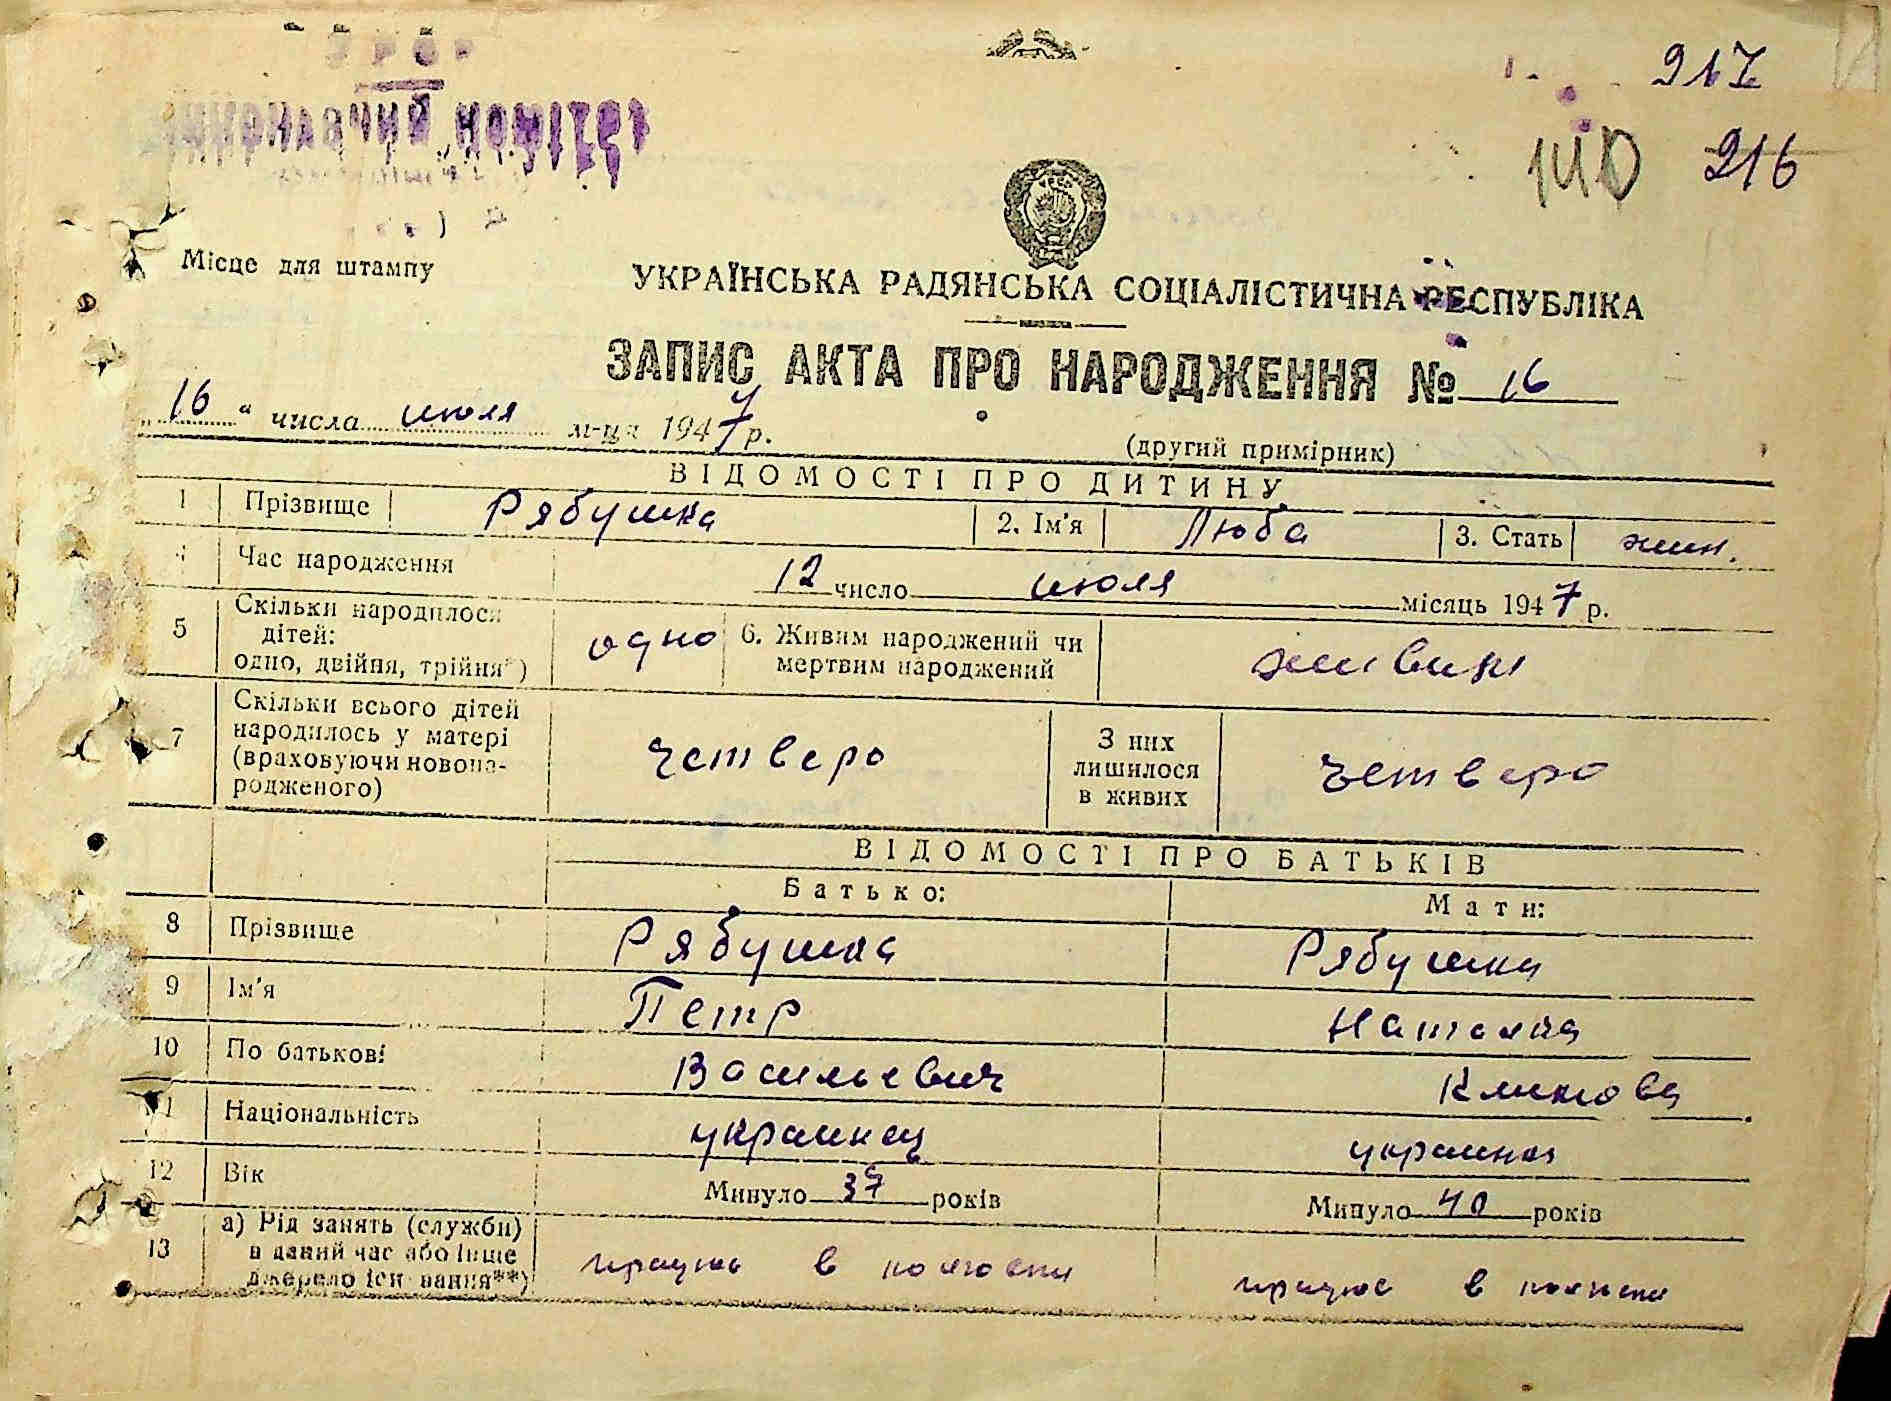 917
ИКОНАВЧИЙ КОМІТЕТ
216
Місце для штампу
УКРАЇНСЬКА РАДЯНСЬКА СОЦІАЛІСТИЧНА РЕСПУБЛІКА
ЗАПИС АКТА ПРО НАРОДЖЕННЯ № 16
„16“ числа июля м-ця 1947 р.
(другий примірник)
ВІДОМОСТІ ПРО ДИТИНУ
1 Прізвище Рябушка 2. Ім'я Люба 3. Стать жин.
4 Час народження 12 число июля місяць 1947 р.
5 Скільки народилося
дітей:
одно, двійня, трійня*) одно 6. Живим народжений чи
мертвим народжений живим
7 Скільки всього дітей
народилось у матері
(враховуючи новона-
родженого) четверо З них
лишилося
в живих четверо
ВІДОМОСТІ ПРО БАТЬКІВ
Батько: Мати:
8 Прізвище Рябушка Рябушка
9 Ім'я Петр Наталка
10 По батькові Васильевич Климова
11 Національність украинец украинка
12 Вік Минуло 37 років Минуло 40 років
13 а) Рід занять (служби)
в даний час або інше
джерело існування**) працює в колгоспи працює в колгоспи